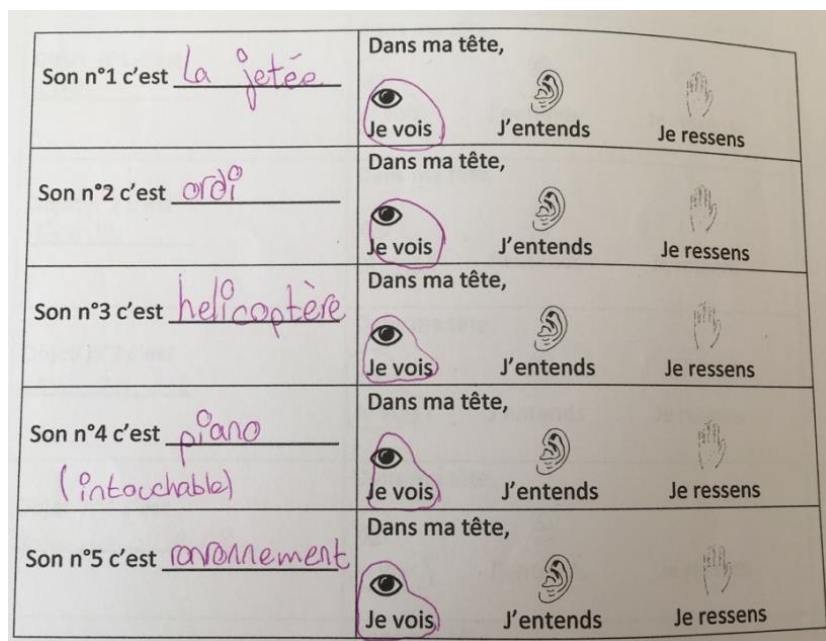 Son n°1 c'est la jetée
Dans ma tête,
Je vois J'entends Je ressens
Son n°2 c'est ordi
Dans ma tête,
Je vois J'entends Je ressens
Son n°3 c'est helicoptère
Dans ma tête,
Je vois J'entends Je ressens
Son n°4 c'est piano
(intouchable)
Dans ma tête,
Je vois J'entends Je ressens
Son n°5 c'est ronronnement
Dans ma tête,
Je vois J'entends Je ressens